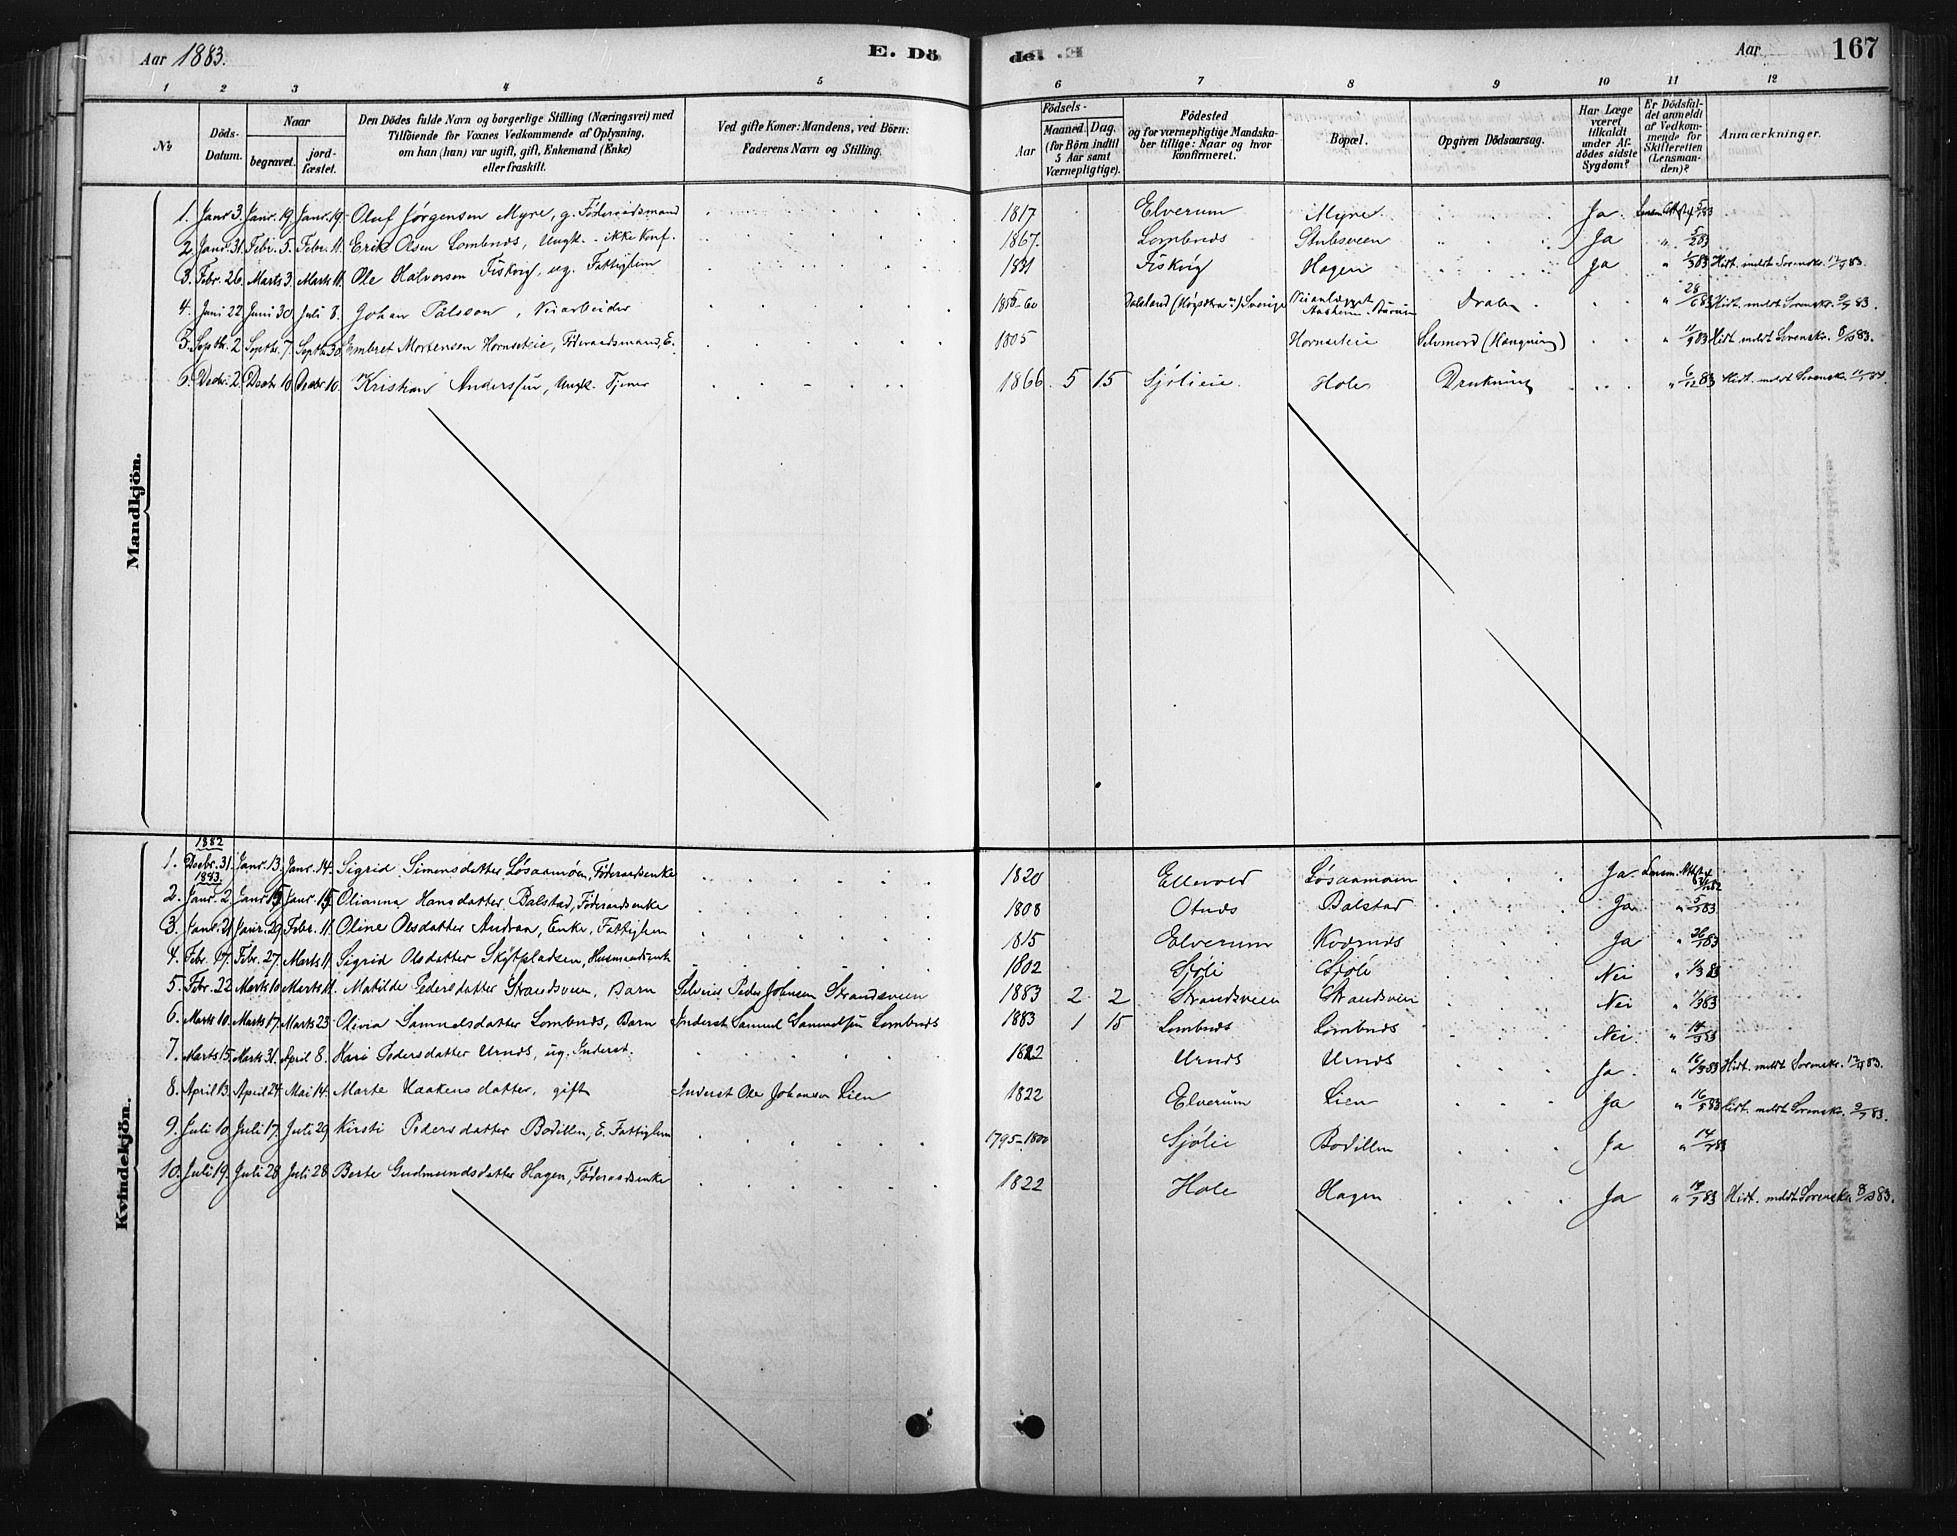 Aar 1883.
E. Dö
de.
Aar
167
1 2 3 4 5 6 7 8 9 10 11 12
No
Döds-Datum.
Naar
begravet.
jord-fæstet.
Den Dödes fulde Navn og borgerlige Stilling (Næringsvei) med
Tilföiende for Voxnes Vedkommende af Oplysning,
om han (hun) var ugift, gift, Enkemand (Enke)
eller fraskilt.
Ved gifte Koner: Mandens, ved Börn:
Faderens Navn og Stilling.
Födsels-
Aar
Maaned. Dag.
(for Börn indtil
5 Aar samt
Værnepligtige).
Födested
og for værnepligtige Mandska-
ber tillige: Naar og hvor
konfirmeret.
Bopæl.
Opgiven Dödsaarsag.
Har Læge
været
tilkaldt
under Af-
dödes sidste
Sygdom?
Er Dödsfal-
det anmeldt
af Vedkom-
mende for
Skifteretten
(Lensman-
den)?
Anmærkninger.
Mandkjön.
1. Janr 3. Janr. 19. Janr. 19. Oluf Jörgensen Myre, g. Föderaadsmand 1817 Elverum Myre. Ja 5/1 83
2. Janr. 31. Febr. 5. Febr. 11. Erik Olsen Lombnæs, Ungk. - ikke konf. 1867. Lombnæs Stubsveen Ja " 5/2 83
3. Febr. 26. Marts 3. Marts 11. Ole Halvorsen Fiskvig, ug. Fattiglem Fiskvig Hagen Ja " 1/3 83 Hidt. meldt Sorenskr. 12/4 83.
4. Juni 22. Juni 30. Juli 8. Johan Pålsson, Veiarbeider Sverige Drabe " 28/6 83 Hidt. meldt Sorenskr. 83.
5. Septb. 2. Septb. 7. Septb. 30. Embret Mortensen Hornseteie, Föderaadsmand, E. 1805 Hornseteie Selvmord (Hængning) " 11/9 83 Hidt. meldt Sorenskr. 8/10 83.
6. Decbr. 2. Decbr 10 Decbr 10. Kristian Andersen, Ungk. Tjener 1866 5 15 Sjölieie Hole Drukning " 6/12 83 Hidt. meldt Sorenskr. 84.
Kvindekjön.
1882
1. Decbr. 31. Janr. 13. Janr. 14. Sigrid Simensdatter Løsaamoen, Föderaadsenke 1820 Ellevold Løsaamoen Ja
1883.
2. Janr. 2. Janr 15. Janr. 15. Olianna Hansdatter Balstad, Föderaadsenke 1808 Otnæs Balstad Ja " 5/1 83
3. Janr. 21. Janr. 29. Febr. 11. Oline Olsdatter, Enke, Fattiglem 1815 Elverum Ja " 26/1 83
4. Febr. 17. Febr. 27. Marts 11. Sigrid Olsdatter Skytpladsen, Husmandsenke 1802 Sjöli Sjöli Nei " 1/3 83
5. Febr. 22. Marts 10. Marts 11. Matilde Pedersdatter Strandsveen, Barn Selveier Peder Johnsen Strandsveen 1883 2 2 Strandsveen Strandsveen Nei " 1/3 83
6. Marts 10. Marts 17. Marts 23. Olivia Samuelsdatter Lombnæs, Barn Inderst Samuel Samuelsen Lombnæs 1883 1 15 Lombnæs Lombnæs Nei " 14/3 83
7. Marts 15. Marts 31. April 8. Kari Pedersdatter Urnæs, ug. Inderst. 1822 Urnæs Urnæs Ja. " 16/3 83 Hidt. meldt Sorenskr. 12/4 83.
8. April 13. April 24. Mai 14. Marte Haakensdatter, gift Inderst Ole Johansen Lien 1822 Elverum Lien Ja " 16/5 83 Hidt. meldt Sorenskr. 83.
9. Juli 10. Juli 17. Juli 29. Kirsti Pedersdatter Bodillen, E. Fattiglem 1795-1800 Sjölie Bodillen Ja " 14/7 83
10. Juli 19. Juli 28. Juli 28. Berte Gudmundsdatter Hagen, Föderaadsenke 1822 Hole Hagen Ja " 83 Hidt. meldt Sorenskr. 8/10 83.